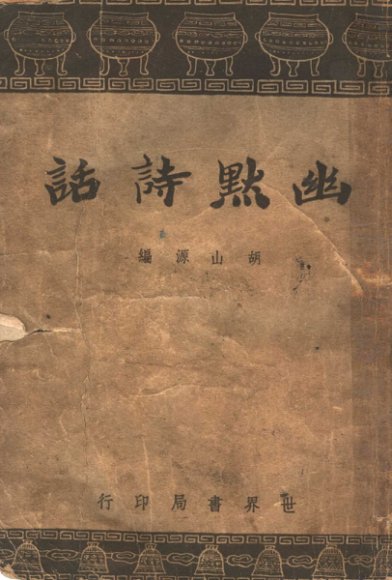 幽默詩話
胡山源編
世界書局印行